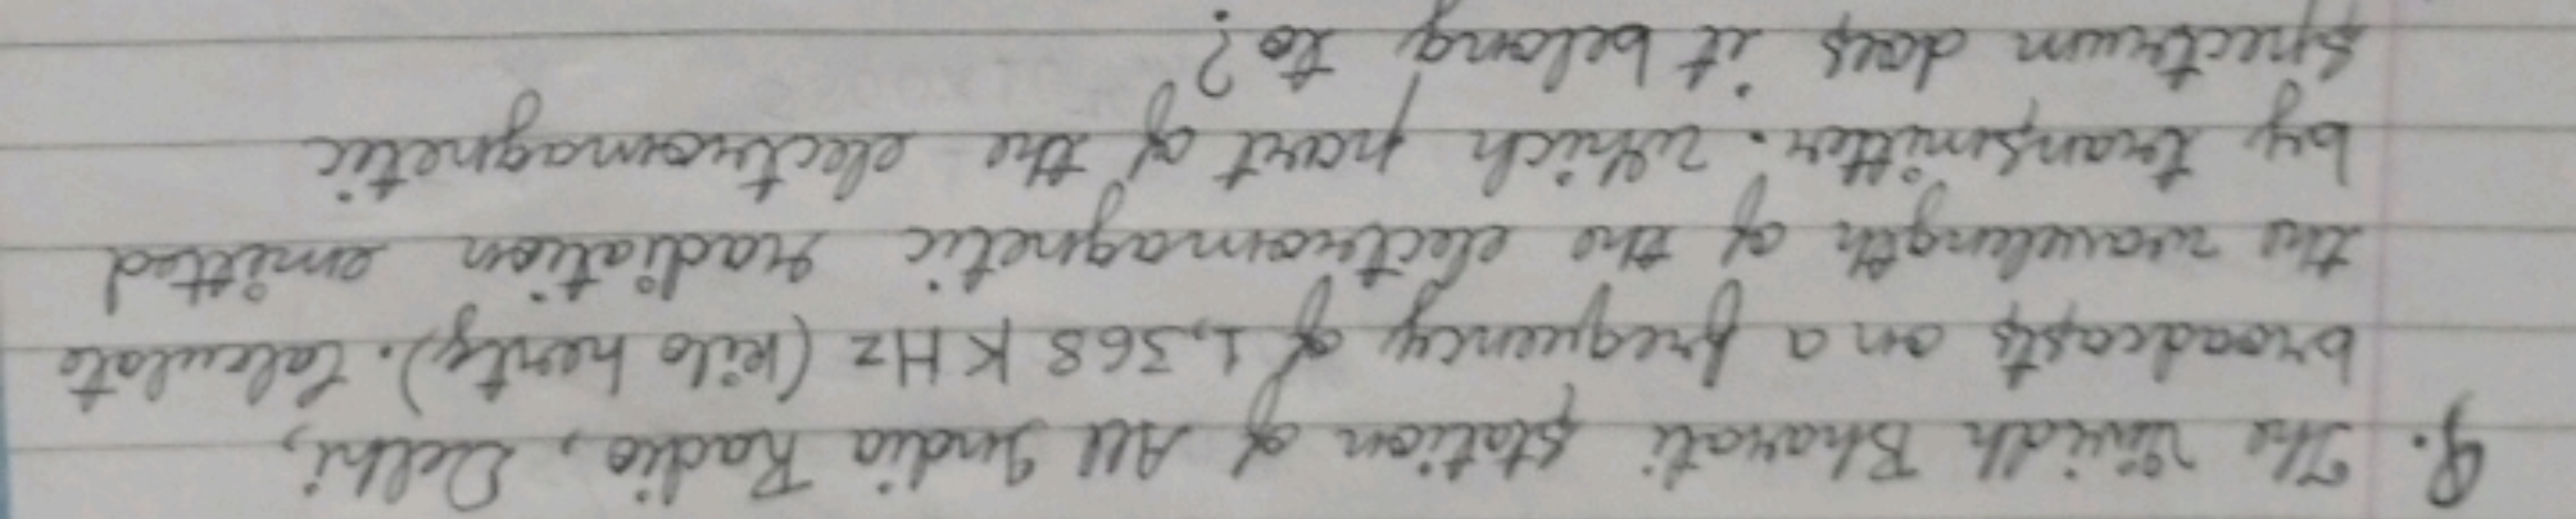 Q. The Vividh Bharati station of All India Radio, Delhi,
broadcasts on a frequency of 1,368 KHz (kilo hertz). Calculate
the wavelength of the electromagnetic radiation emitted
by transmitter. Which part of the electromagnetic
spectrum does it belong to?